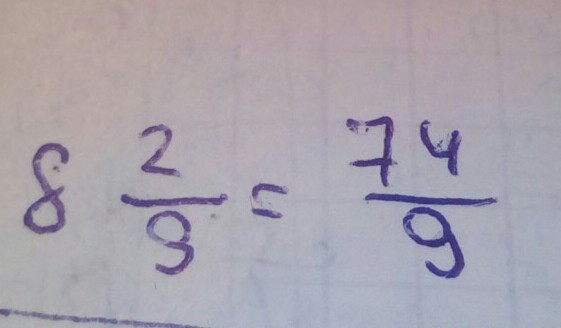 8 2/9 = 74/9